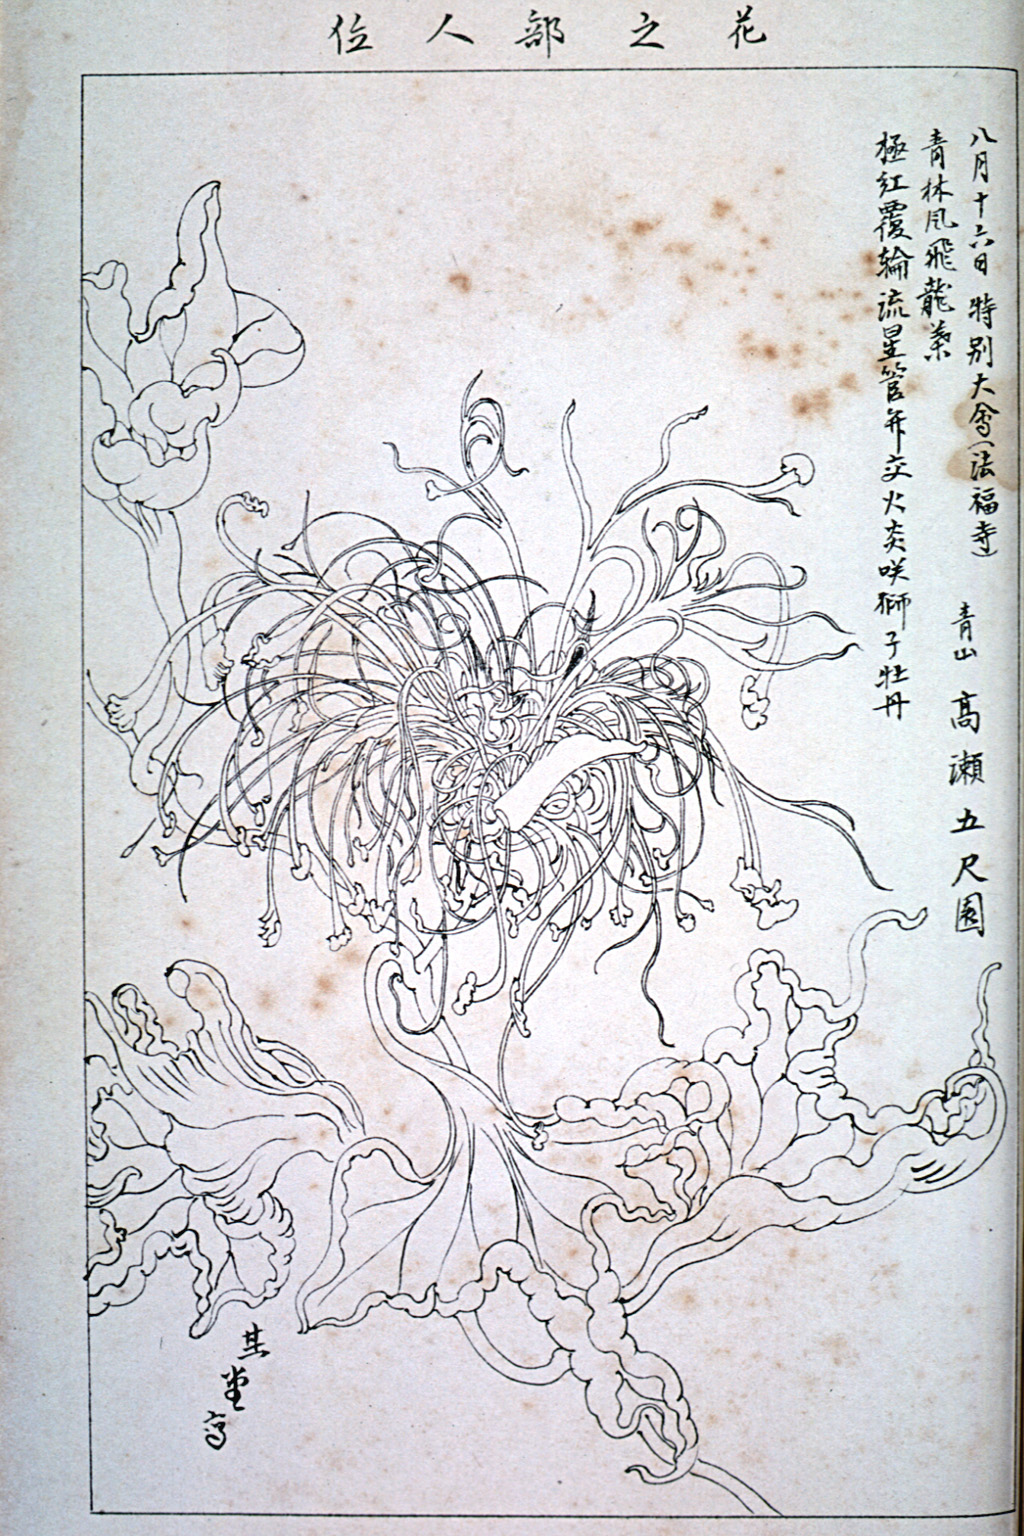 花之部人位
八月十六日 特別大會(法福寺) 青山 高瀬五尺園
青林風飛龍葉
極紅覆輪流星管弁交火炎咲獅子牡丹
其堂写